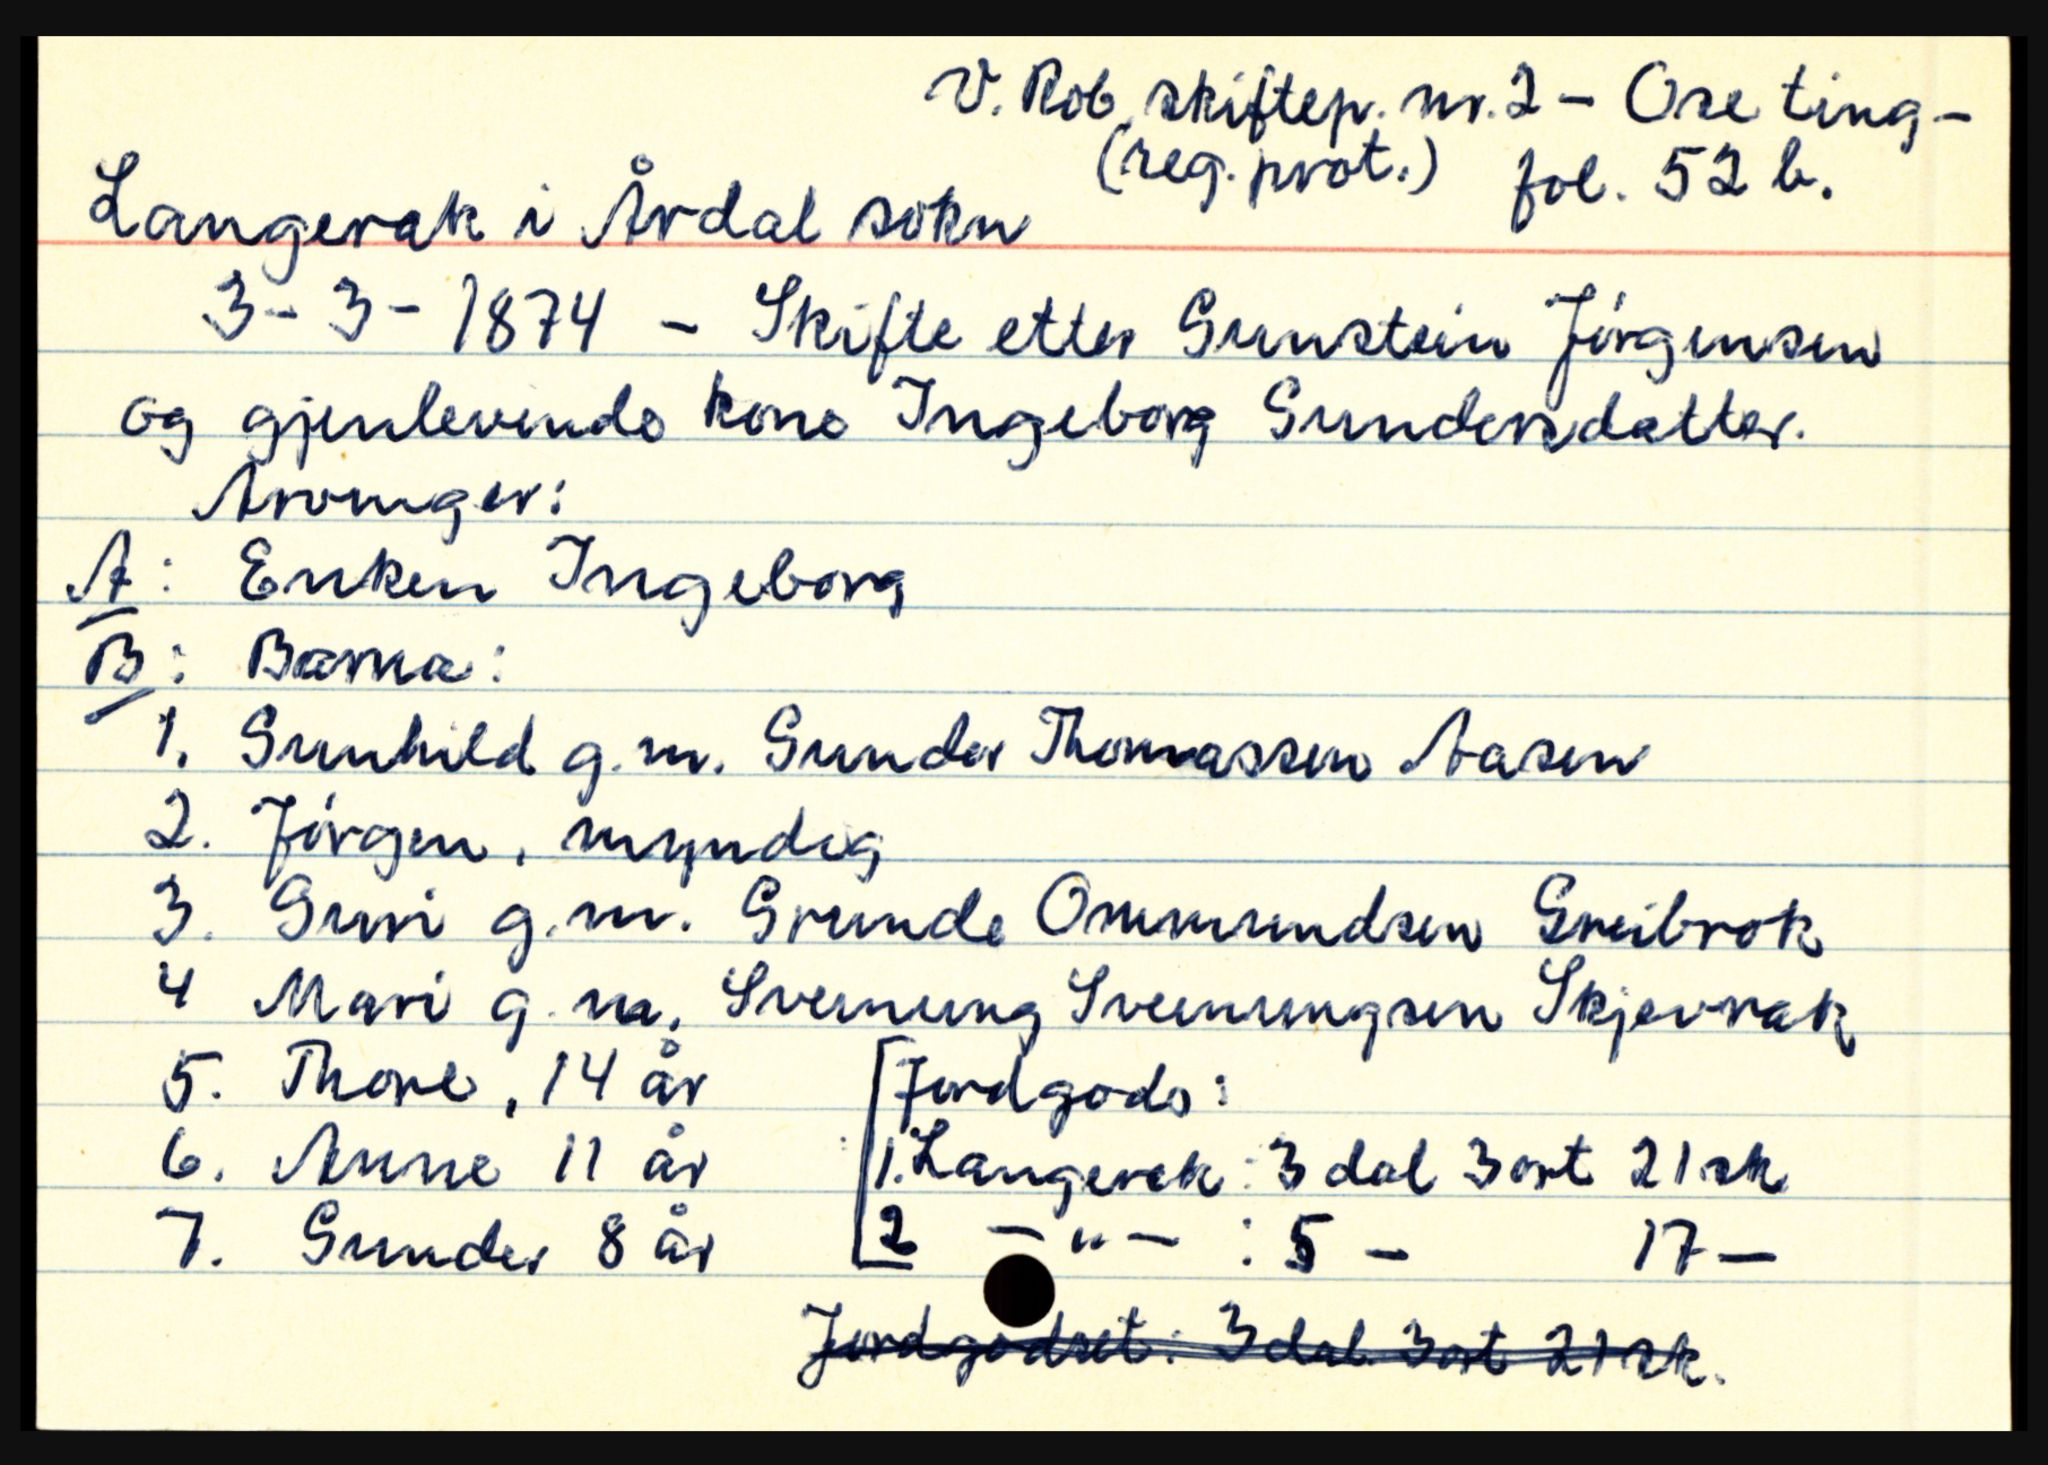 V. Rob. skiftep. nr. 2 - Ose ting-
(reg. prot.) fol. 52 b.
Langerak i Årdal sokn
3-3-1874 - Skifte etter Gunstein Jörgensen
og gjenlevende kone Ingeborg Gundersdatter.
Arvinger:
A: Enken Ingeborg
B: Barna:
1. Gunhild g.m. Gunder Thomassen Aasen
2. Jörgen, myndig
3. Guri g.m. Grunde Ommundsen Greibrok
4 Mari g.m. Sveinung Sveinungsen Skjevrak
5. Thore, 14 år
6. Anne 11 år
7. Gunder 8 år
Jordgods:
1. Langerak: 3 dal 3 ort 21 sk
2 -"- : 5 - 17 -
Jordgodset: 3 dal. 3 ort 21 sk.